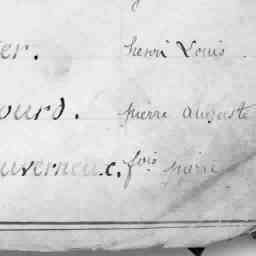 er. henri Louis
ourd. pierre auguste
uverneur. fois pierre